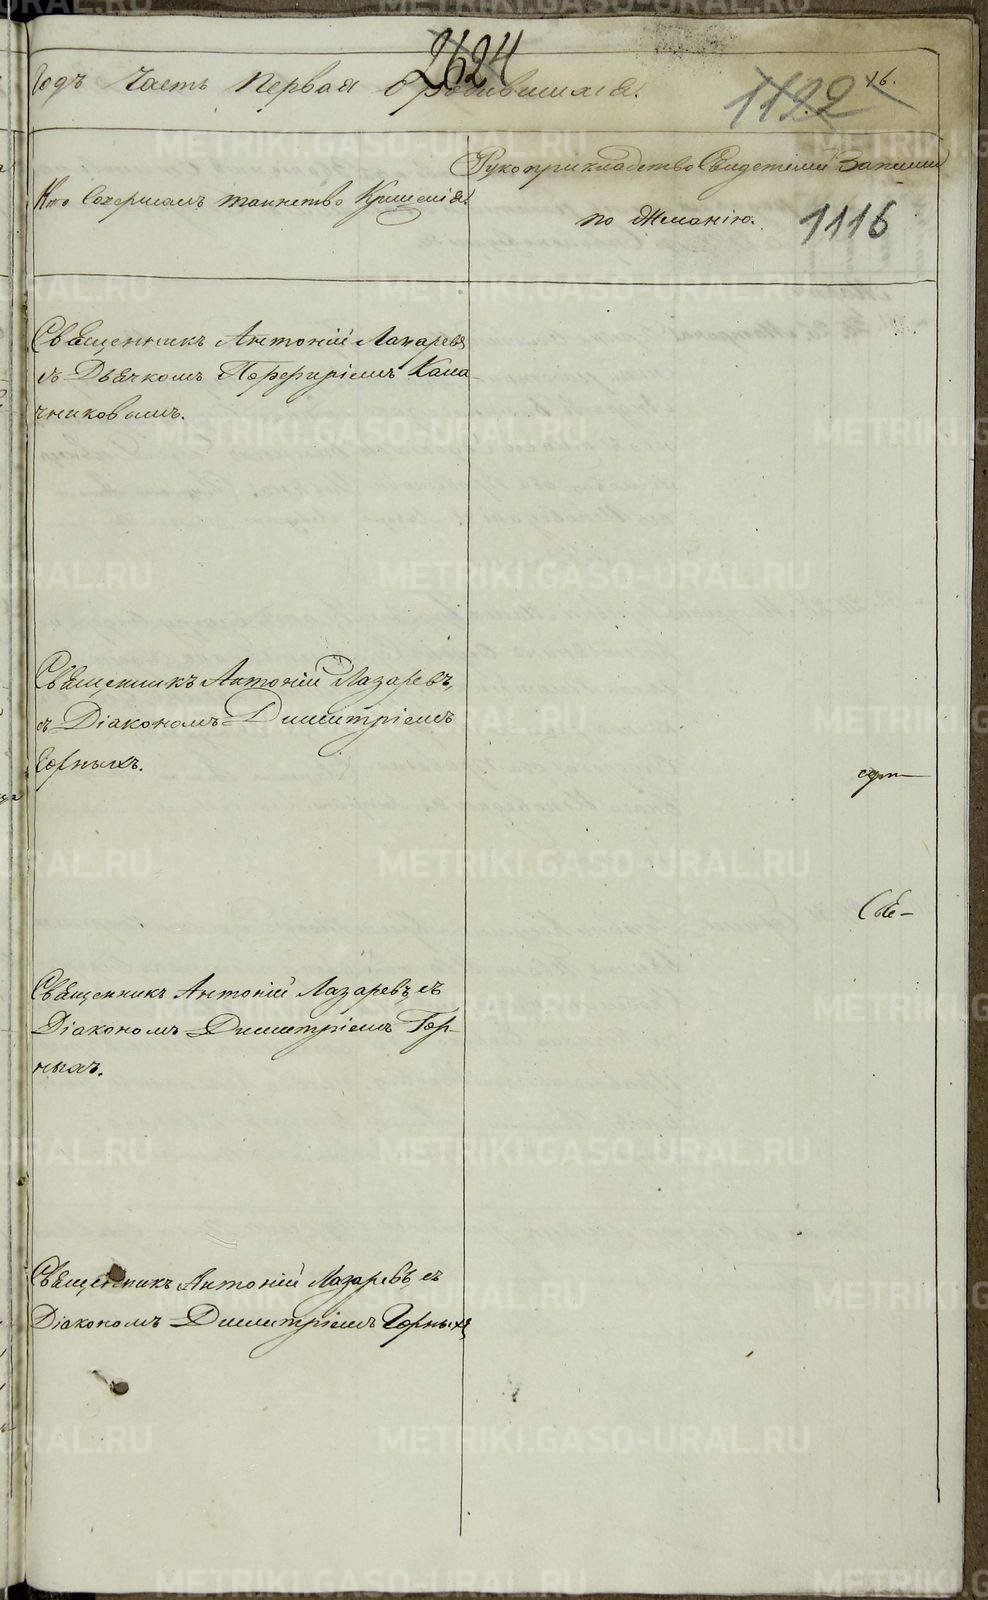 2624
Годъ Часть Первая о родившихся.
1122
16.
Кто Совершалъ таинство Крещенія.
Рукоприкладство Свидетелей Записи
по Желанію.
1116
Священникъ Антоній Лазаревъ
съ Дьячкомъ Порфиріемъ Кала-
чниковымъ.
Священникъ Антоній Лазаревъ,
съ Діакономъ Димитріемъ
Горныхъ.
Священникъ Антоній Лазаревъ, съ
Діакономъ Димитріемъ Гор-
ныхъ.
Священникъ Антоній Лазаревъ, съ
Діакономъ Димитріемъ Горныхъ
METRIKI.GASO-URAL.RU